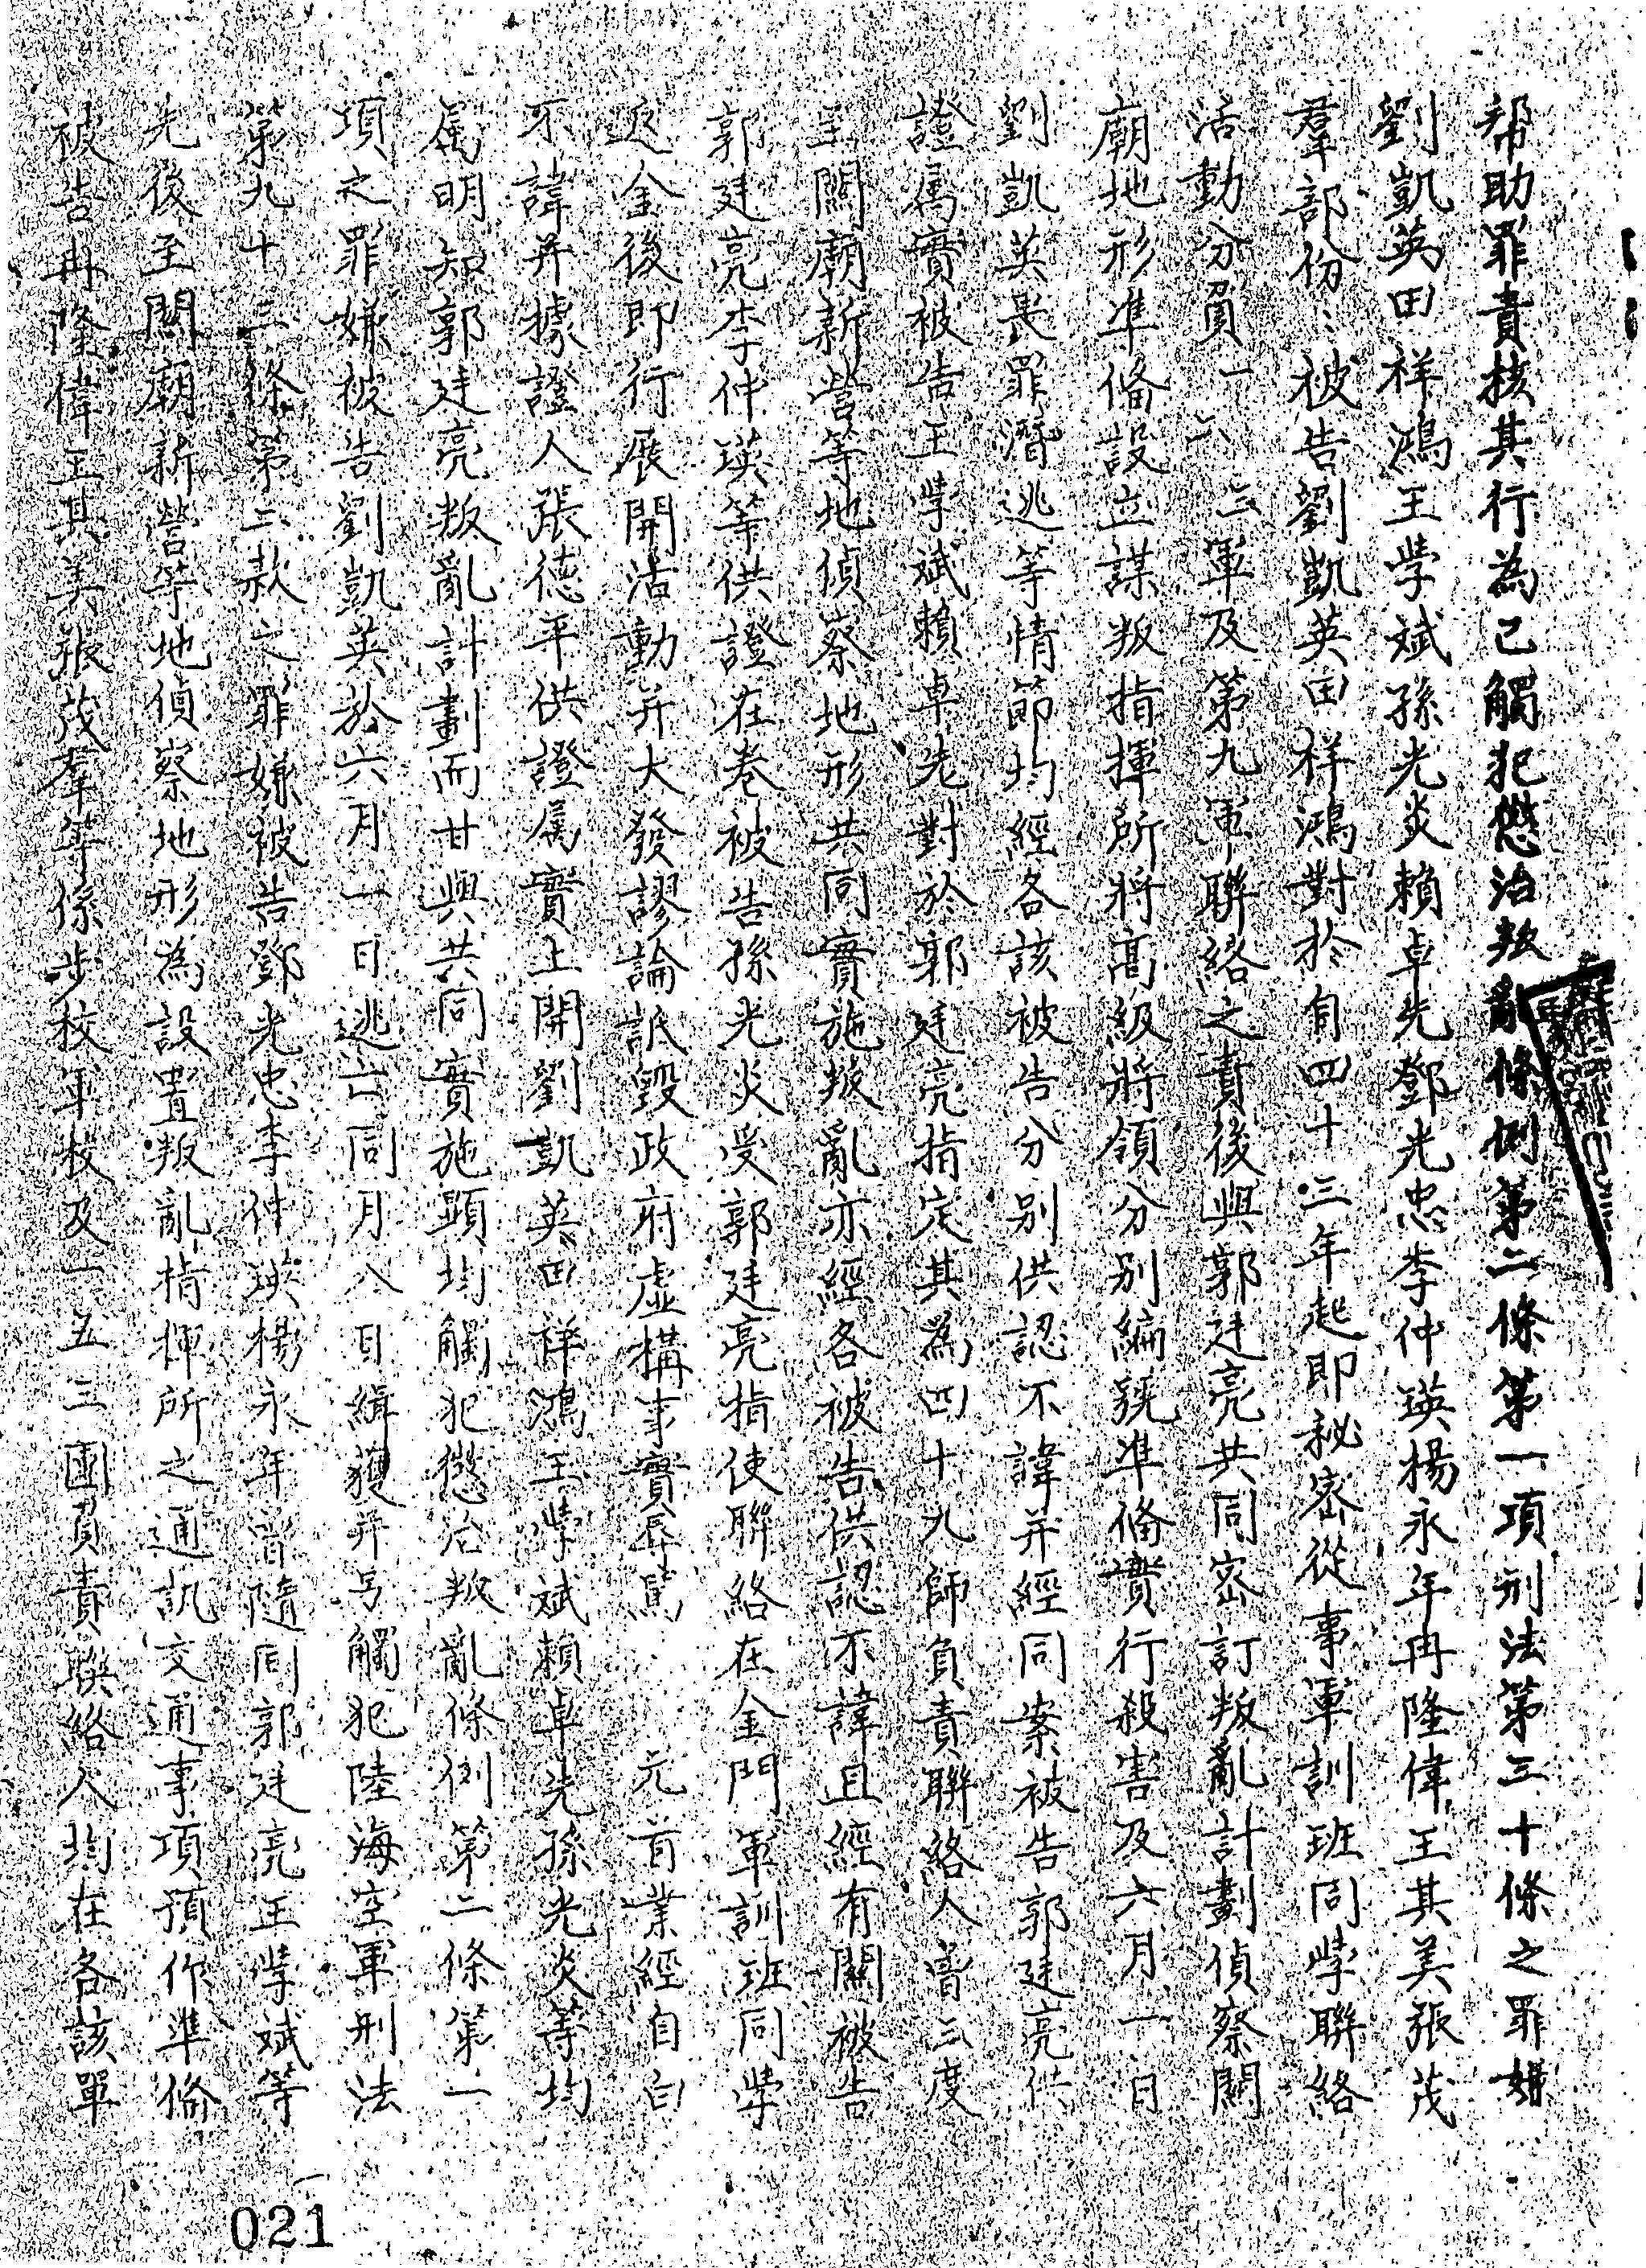 帮助罪責核其行為已觸犯懲治叛亂條例第二條第一項刑法第三十條之罪嫌
劉凱英田祥鴻王學斌孫光炎賴卓先鄧光忠李仲瑛楊永年冉隆偉王其美張茂
羣部份：被告劉凱英田祥鴻對於自四十三年起即秘密從事軍訓班同學聯絡
活動分負一、六、三軍及第九軍聯絡之責後與郭廷亮共同密訂叛亂計劃偵察關
廟地形準備設立謀叛指揮所將高級將領分別編號準備實行殺害及六月一日
劉凱英畏罪潛逃等情節均經各該被告分別供認不諱并經同案被告郭廷亮供
證属實被告王學斌賴卓先對於郭廷亮指定其為四十九師負責聯絡人曾三度
至關廟新營等地偵察地形共同實施叛亂亦經各被告供認不諱且經有關被告
郭廷亮李仲瑛等供證在卷被告孫光炎受郭廷亮指使聯絡在金門軍訓班同學
返金後即行展開活動并大發謬論詆毀政府虛構事實辱罵　元首業經自白
不諱并據證人張德平供證属實上開劉凱英田祥鴻王學斌賴卓先孫光炎等均
属明知郭廷亮叛亂計劃而甘與共同實施顯均觸犯懲治叛亂條例第二條第一
項之罪嫌被告劉凱英於六月一日逃亡同月八日緝獲并另觸犯陸海空軍刑法
第九十三條第二款之罪嫌被告鄧光忠李仲瑛楊永年曾隨同郭廷亮王學斌等
先後至關廟新營等地偵察地形為設置叛亂指揮所之通訊交通事項預作準備
被告冉隆偉王其美張茂羣等係步校軍校及一五三團負責聯絡人均在各該單
021